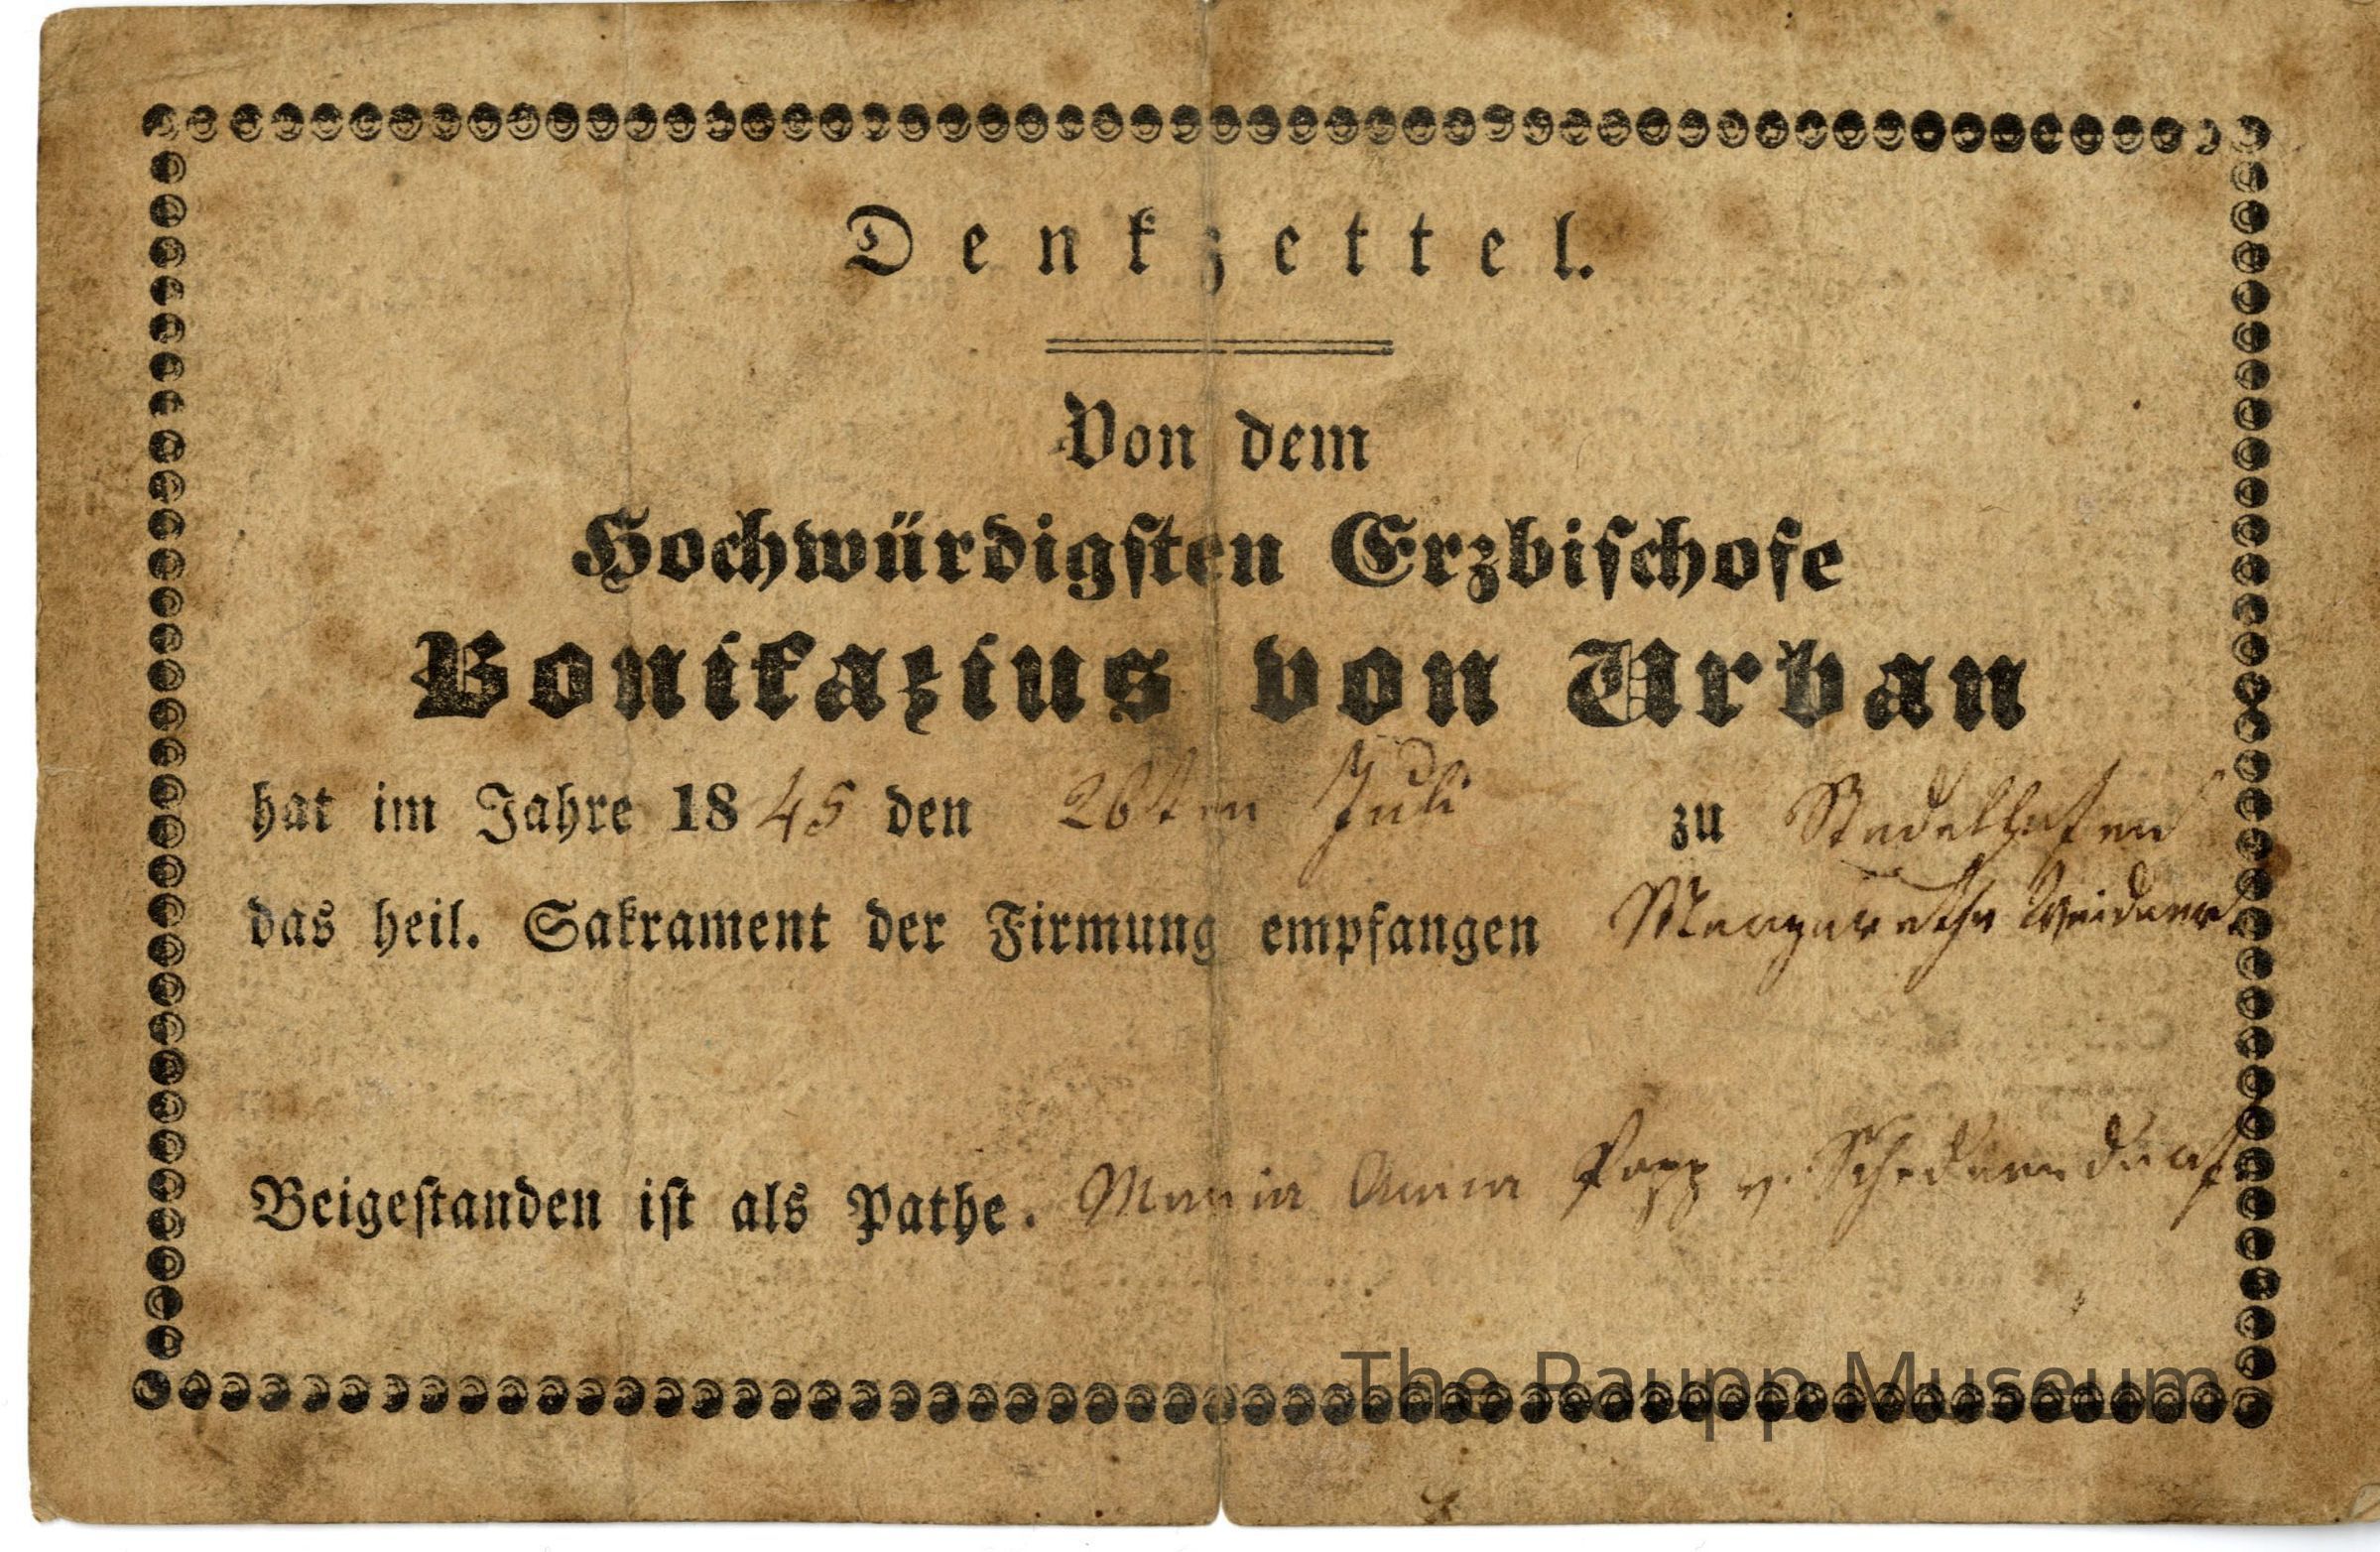 Denkzettel.
Von dem
Hochwürdigsten Erzbischofe
Bonifazius von Urban
hat im Jahre 1845 den 26ten Juli zu Stadelhofen
das heil. Sakrament der Firmung empfangen Margarethe Weidner
Beigestanden ist als Pathe. Maria Anna Popp v.
The Raupp Museum